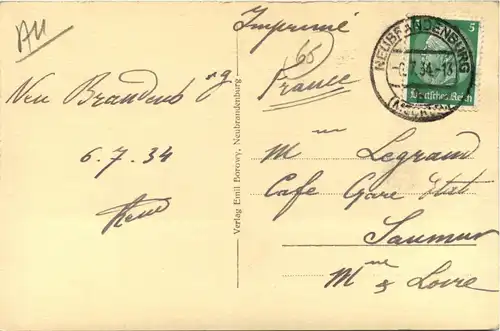 All
Imprimé
65
France
Neu Brandenbg
6.7.34
René
Verlag Emil Borowy, Neubrandenburg
NEUBRANDENBURG
7.34.-13
(MECKLB)
5
Deutsches Reich
Mme Legrand
Cafe Gare Etat
Saumur
Mne & Loire